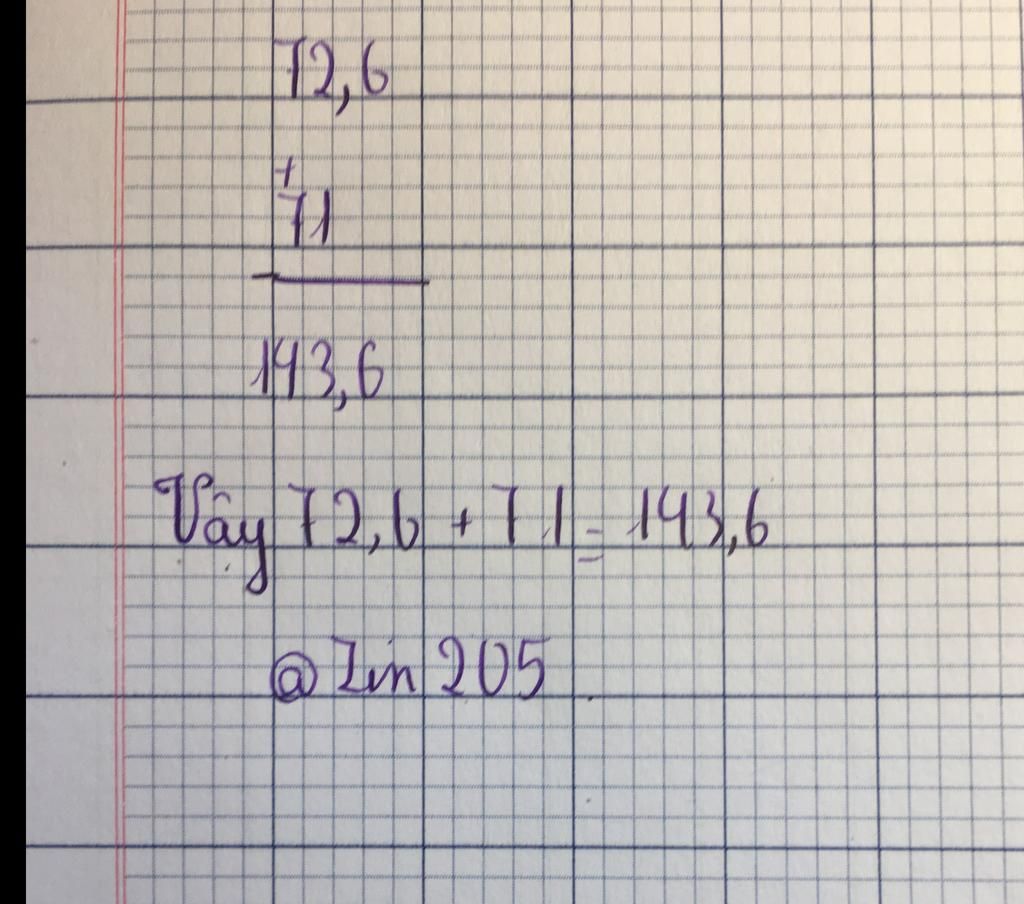 72,6
+
71
143,6
Vậy 72,6 + 71 = 143,6
@Zin 205